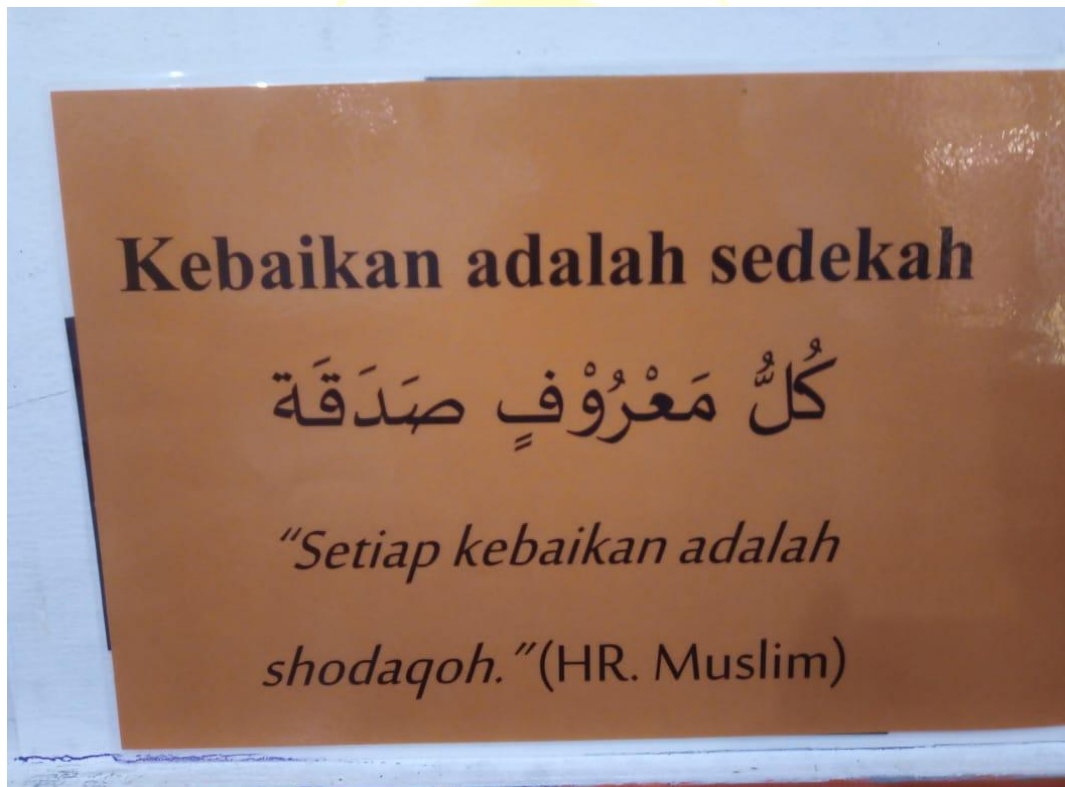 Kebaikan adalah sedekah
كُلُّ مَعْرُوْفٍ صَدَقَة
“Setiap kebaikan adalah
shodaqoh.”(HR. Muslim)